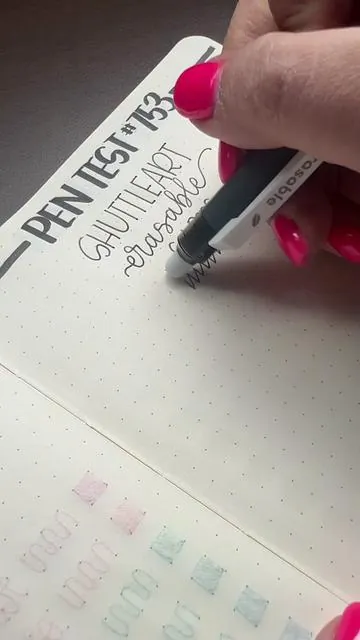 PEN TEST #753
SHUTTLE ART
erasable
erasable